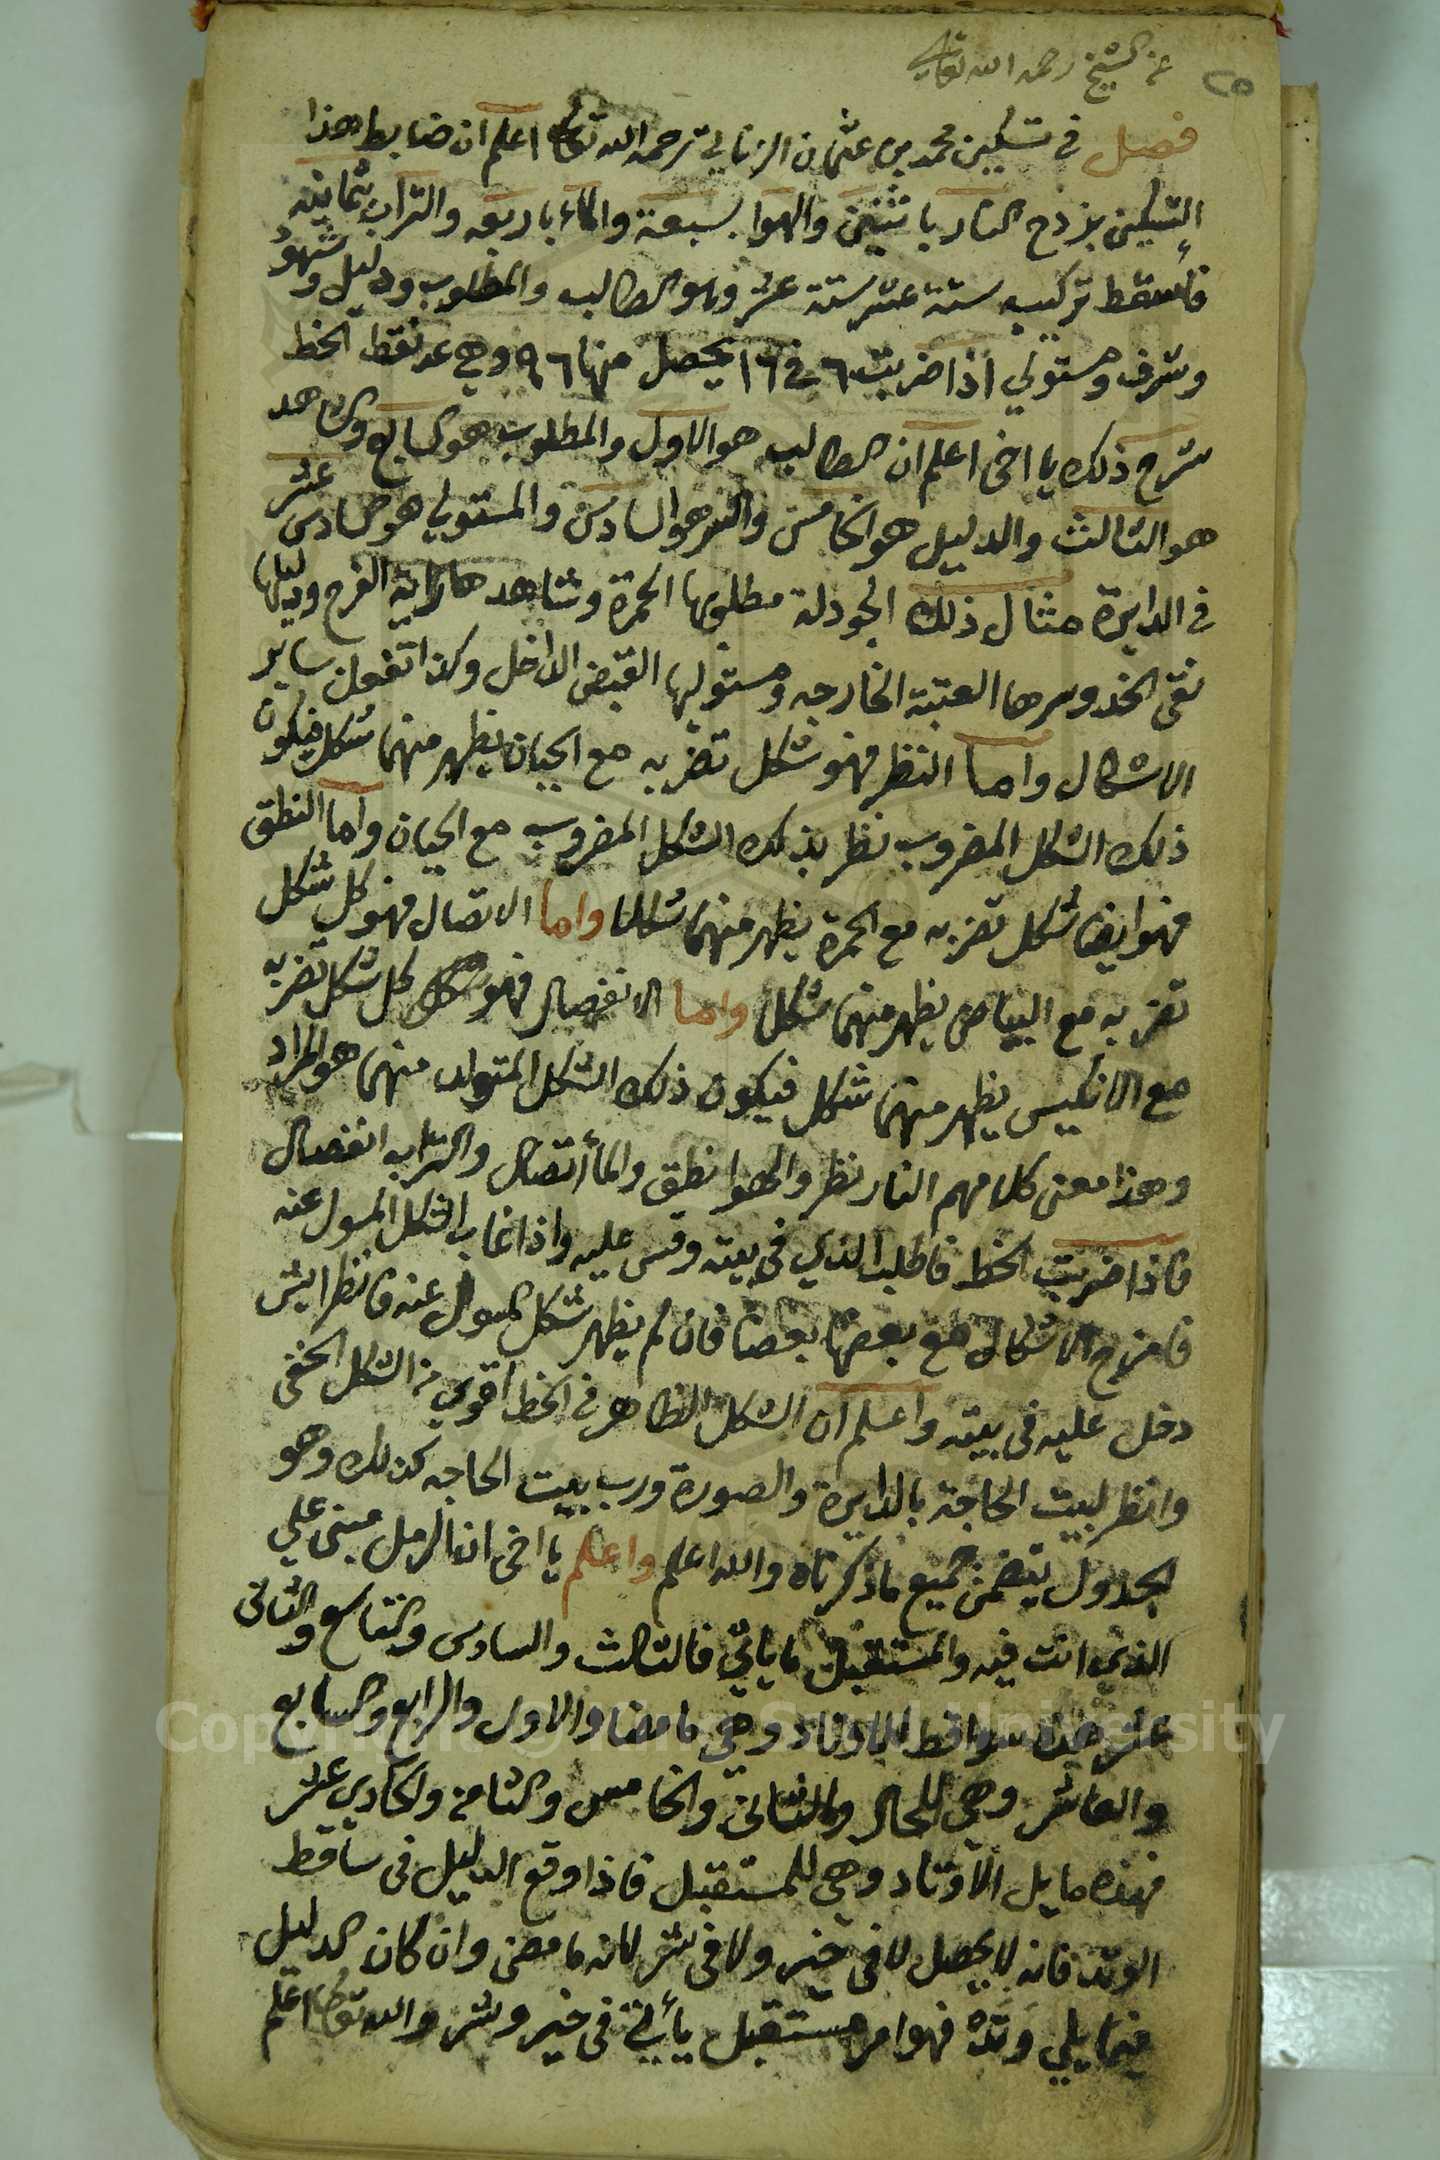 عن الشيخ رحمه الله تعالى
٢٥
فصل في تسكين محمد بن عثمان الزناتي رحمه الله تعالى اعلم ان ضابط هذا
التسكين بزدح النار باثنين والهوا بسبعة والماء باربعه والتراب بثمانيه
فأسقط تركيبه ستة عشر ستة عشر وهو الطالب والمطلوب ودليل وشهود
وشرف ومستولي اذا ضربت ٦ في ١٦ يحصل منها ٩٦ وهي عد نقط الخط
شرح ذلك يا اخى اعلم ان الطالب هو الاول والمطلوب هو السابع والشاهد
هو الثالث والدليل هو الخامس والسر هو السادس والمستولي هو السادس عشر
في الدايرة مثال ذلك الجودلة مطلوبها الحمرة وشاهدها راية الفرح ودليلها
نقى الخد وسرها العتبة الخارجه ومستوليها القبض الداخل وكذا تفعل ساير
الاشكال واما النظر فهو شكل تضربه مع الجيان يظهر منهما شكل فيكون
ذلك الشكل المضروب نظر بذلك الشكل المضروب مع الجيان واما النطق
فهو ايضا شكل تضربه مع الحمرة يظهر منهما شكلا واما الاتصال فهو كل شكل
تضربه مع البياض يظهر منهما شكل واما الانفصال فهو كل شكل تضربه
مع الانكيس يظهر منهما شكل فيكون ذلك الشكل المتولد منهما هو المراد
وهذا معنى كلامهم النار نظر والهوا نطق والمأ اتصال والتراب انفصال
فاذا ضربت الخط فاطلب الذي في بيته وقس عليه واذا غاب الشكل المسول عنه
فامزج الاشكال مع بعضها بعضا فان لم يظهر شكل المسول عنه فانظر ايش
دخل عليه في بيته واعلم ان الشكل الظاهر في الخط اقوى من الشكل الخفى
وانظر لبيت الحاجة بالدايرة والصورة ورب بيت الحاجه كذلك وهو
الجدول يتضمن جميع ما ذكرناه والله اعلم واعلم يا اخى ان الرمل مبنى على
الذي انت فيه والمستقبل ما ياتي فالثالث والسادس والتاسع والثانى
عشر هذه سواقط الاوتاد وهي ما مضا والاول والرابع والسابع
والعاشر وهي للحال والثاني والخامس والثامن والحادي عشر
فهذه مايل الاوتاد وهي للمستقبل فاذا وقع الدليل في ساقط
الوتد فانه لا يحصل لا في خير ولا في شر لانه ما مضى وان كان الدليل
فيما يلي وتده فهو امر مستقبل يأتي في خير وشر والله تعالى اعلم
Copyright © King Saud University